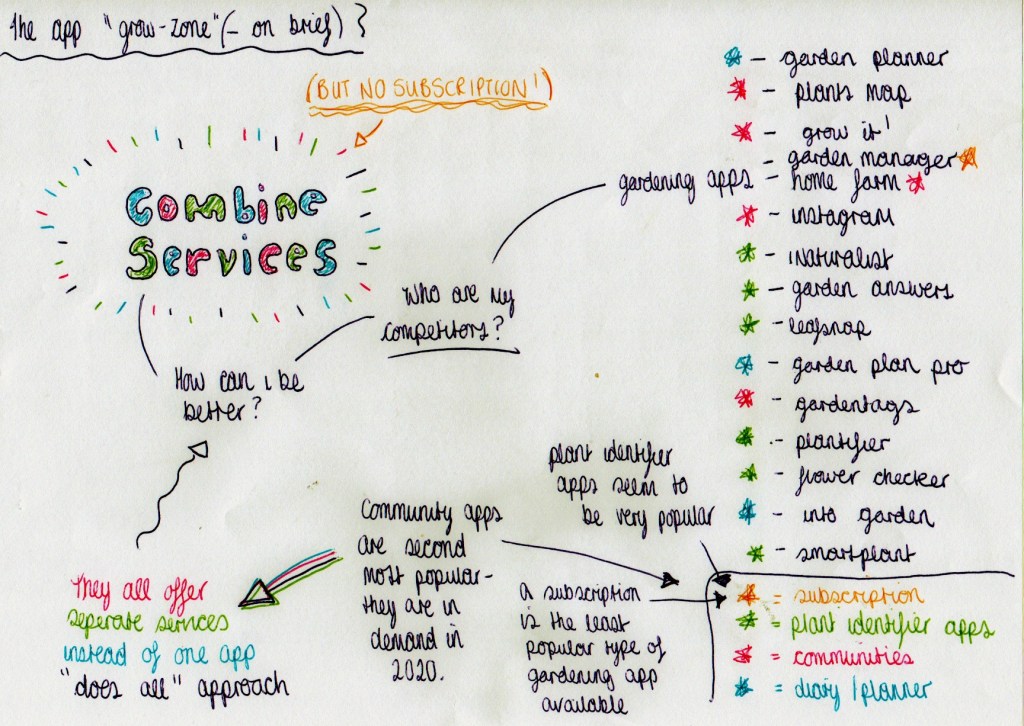 The app "grow-zone" (- on brief) }
(BUT NO SUBSCRIPTION!)
Combine
Services
How can i be
better?
Who are my
competitors?
gardening apps
- garden planner
- plants map
- grow it!
- garden manager
- home farm
- instagram
- iNaturalist
- garden answers
- leafsnap
- garden plan pro
- gardentags
- plantifier
- flower checker
- into garden
- smartplant
plant identifier
apps seem to
be very popular
Community apps
are second
most popular -
they are in
demand in
2020.
A subscription
is the least
popular type of
gardening app
available
They all offer
seperate services
instead of one app
"does all" approach
= subscription
= plant identifier apps
= communities
= diary/planner